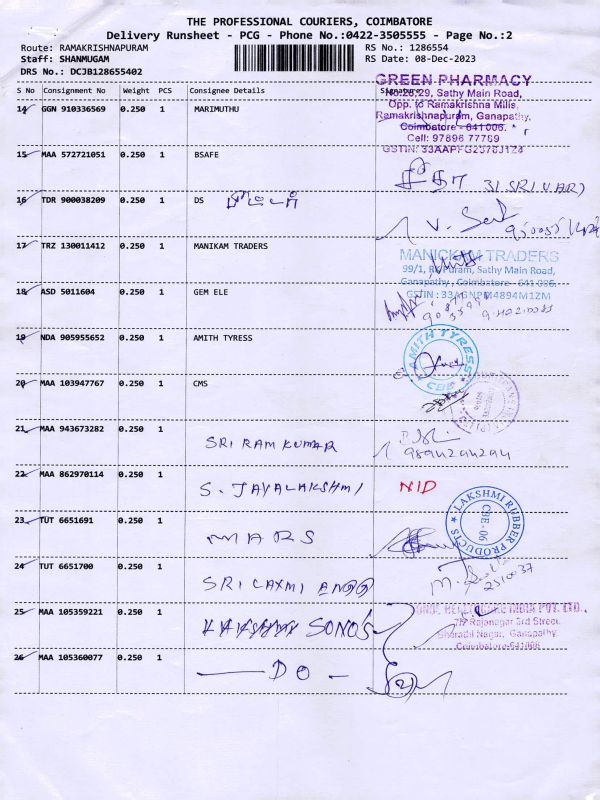 THE PROFESSIONAL COURIERS, COIMBATORE
Delivery Runsheet - PCG - Phone No.:0422-3505555 - Page No.:2
Route: RAMAKRISHNAPURAM
RS No.: 1286554
Staff: SHANMUGAM
RS Date: 08-Dec-2023
DRS No.: DCJB128655402
S No Consignment No Weight PCS Consignee Details Signature
GREEN PHARMACY
No.28,29, Sathy Main Road,
Opp. to Ramakrishna Mills,
Ramakrishnapuram, Ganapathy,
Coimbatore - 641 006.
Cell: 97896 77769
14 GGN 910336569 0.250 1 MARIMUTHU
15 MAA 572721051 0.250 1 BSAFE
16 TDR 900038209 0.250 1 DS
17 TRZ 130011412 0.250 1 MANIKAM TRADERS
MANICKAM TRADERS
99/1, RK Puram, Sathy Main Road,
Ganapathy, Coimbatore - 641 006.
GSTIN : 33AGNPM4894M1ZM
18 ASD 5011604 0.250 1 GEM ELE
19 NDA 905955652 0.250 1 AMITH TYRESS
AMITH TYRESS
CBE
20 MAA 103947767 0.250 1 CMS
21 MAA 943673282 0.250 1 SRI RAM KUMAR
22 MAA 862970114 0.250 1 S. JAYALAKSHMI NID
23 TUT 6651691 0.250 1 MARS
LAKSHMI RUBBER PRODUCTS
CBE - 06
24 TUT 6651700 0.250 1 SRI LAXMI ENGG
25 MAA 105359221 0.250 1 SONO'S
HEALTHCARE INDIA PVT. LTD.,
Rajanagar 3rd Street,
Bharathi Nagar, Ganapathy,
Coimbatore-641006
26 MAA 105360077 0.250 1 — DO —